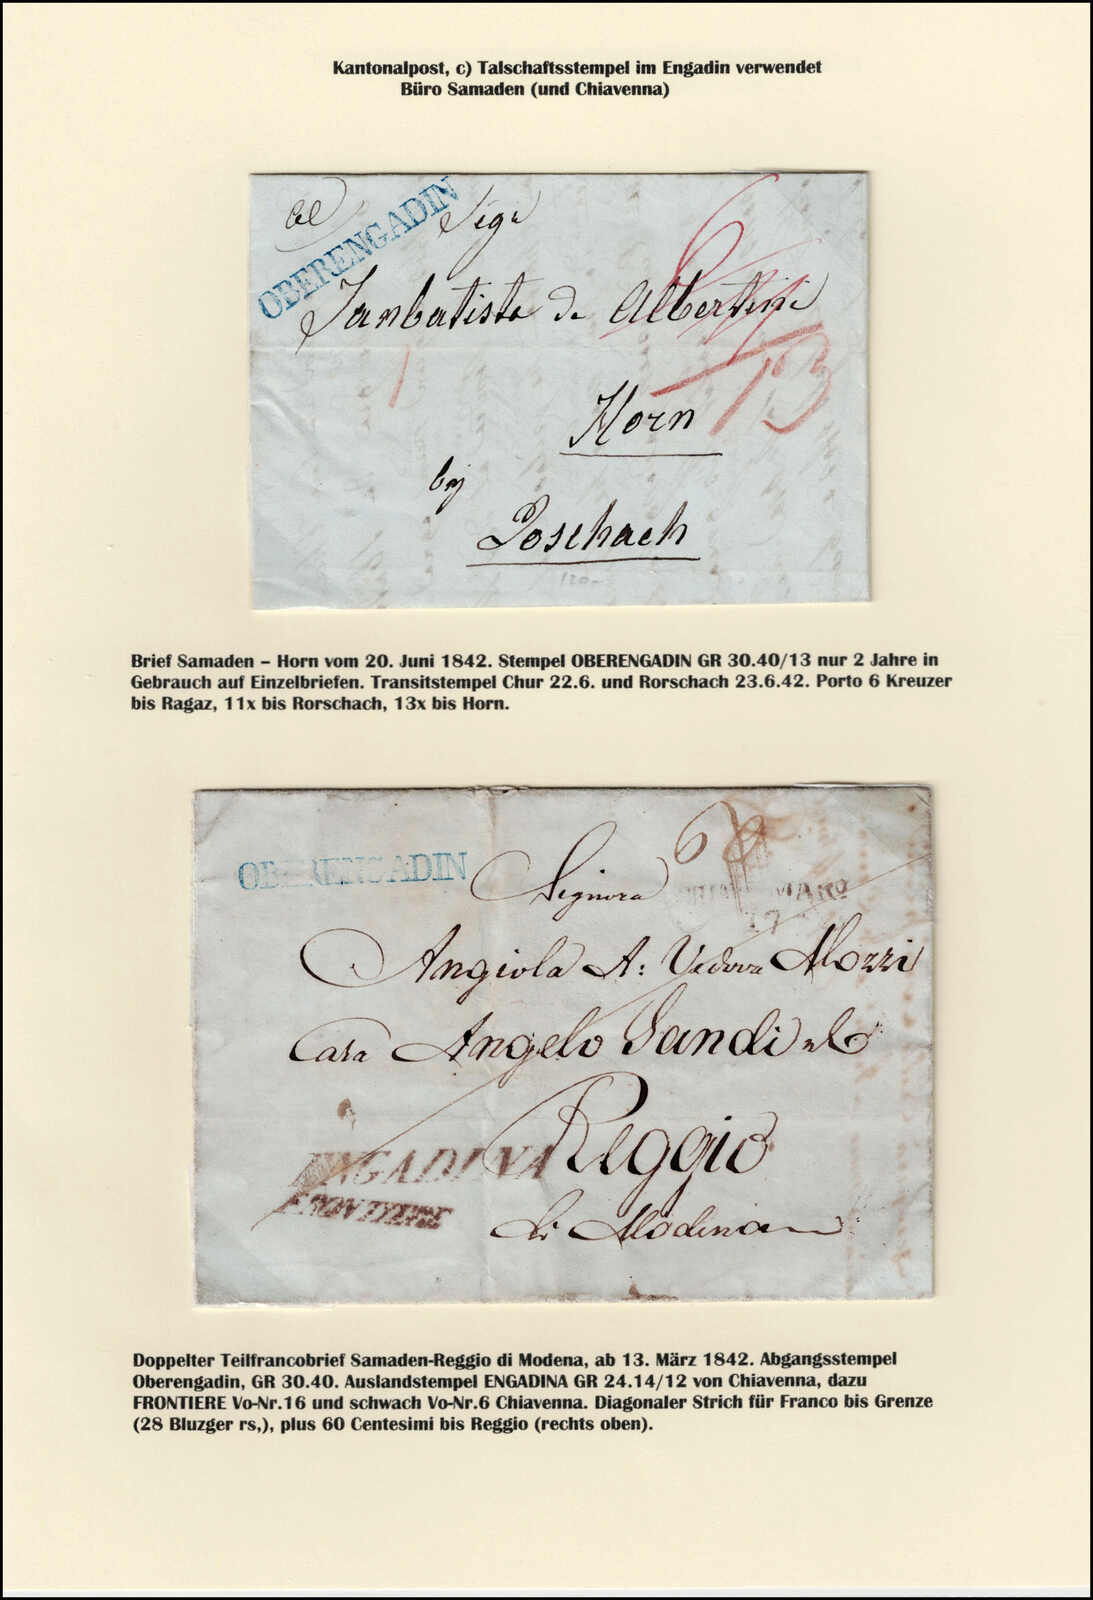 Kantonalpost, c) Talschaftsstempel im Engadin verwendet
Büro Samaden (und Chiavenna)
OBERENGADIN
Sigr
Janbatista de Albertini
6
13
Horn
bij
Roschach
120.-
Brief Samaden – Horn vom 20. Juni 1842. Stempel OBERENGADIN GR 30.40/13 nur 2 Jahre in
Gebrauch auf Einzelbriefen. Transitstempel Chur 22.6. und Rorschach 23.6.42. Porto 6 Kreuzer
bis Ragaz, 11x bis Rorschach, 13x bis Horn.
OBERENGADIN
6
Signora
MARO
17
Angiola A: Vedova Mozzi
Casa Angelo Sandi
ENGADINA
Reggio
FRONTIERE
di Modena
Doppelter Teilfrancobrief Samaden-Reggio di Modena, ab 13. März 1842. Abgangsstempel
Oberengadin, GR 30.40. Auslandstempel ENGADINA GR 24.14/12 von Chiavenna, dazu
FRONTIERE Vo-Nr.16 und schwach Vo-Nr.6 Chiavenna. Diagonaler Strich für Franco bis Grenze
(28 Bluzger rs,), plus 60 Centesimi bis Reggio (rechts oben).